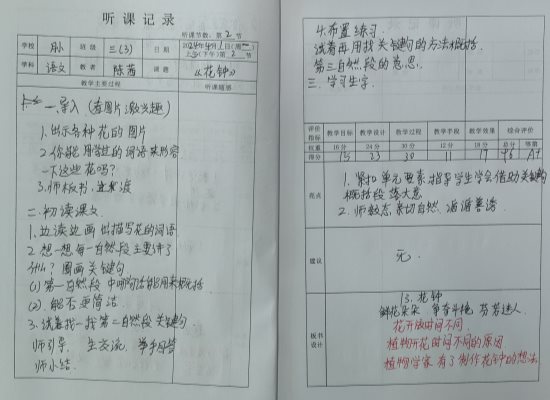 听课记录
听课节数：第 2 节
学校 附小 班级 三(3) 日期 2024年4月1日(周一)
上午(下午)第 2 节
学科 语文 教者 陈茜 课题 《花钟》
教学主要过程 听课随感
一.导入(看图片,激兴趣)
1.出示各种花的图片
2.你能用学过的词语来形容
一下这些花吗?
3.师板书,过渡
二.初读课文
1.边读边画出描写花的词语
2.想一想每一自然段主要讲了
什么?圈画关键句
(1)第一自然段中哪句话能用来概括
(2).能否更简洁.
3.试着找一找第二自然段关键句
师引导. 生交流. 举手回答
师小结.
4.布置练习.
试着再用找关键句的方法概括
第三自然段的意思.
三.学习生字.
评价指标 教学目标 教学设计 教学过程 教学手段 教学效果 综合评价
权重 16分 24分 30分 12分 18分 总分 等第
得分 15 23 30 11 17 96 A+
亮点
1.紧扣单元要素,指导学生学会借助关键句
概括段落大意
2.师教态亲切自然、循循善诱
建议
无.
板书设计
13.花钟
鲜花朵朵 争奇斗艳 芬芳迷人
花开放时间不同.
植物开花时间不同的原因
植物学家有了制作花钟的想法